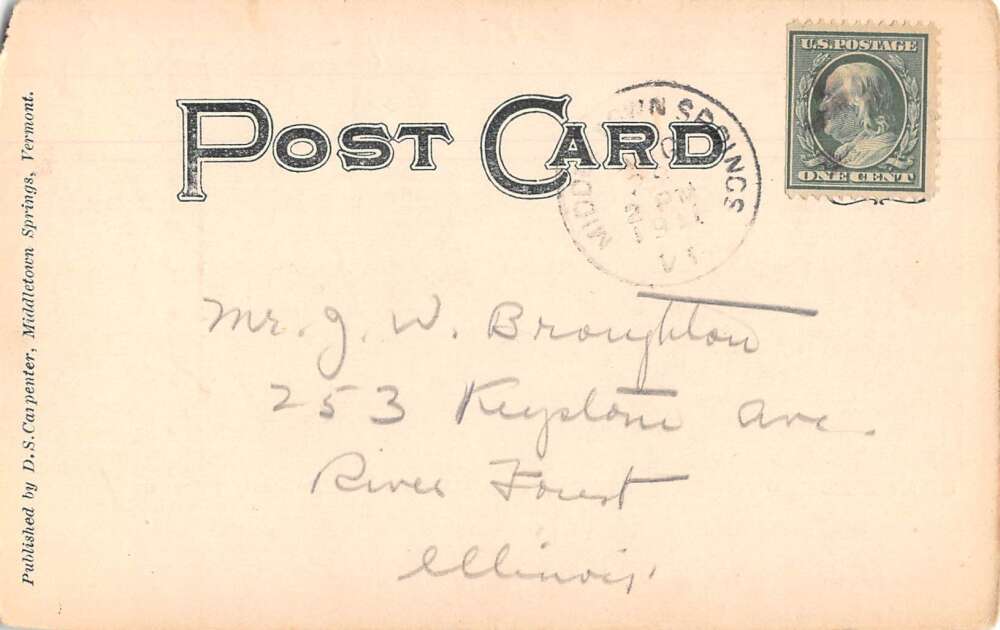 POST CARD
U.S. POSTAGE
ONE CENT
SPRINGS
Mr. J. W. Broughton
253 Keystone Ave.
River Forest
Illinois
Published by D.S. Carpenter, Middletown Springs, Vermont.